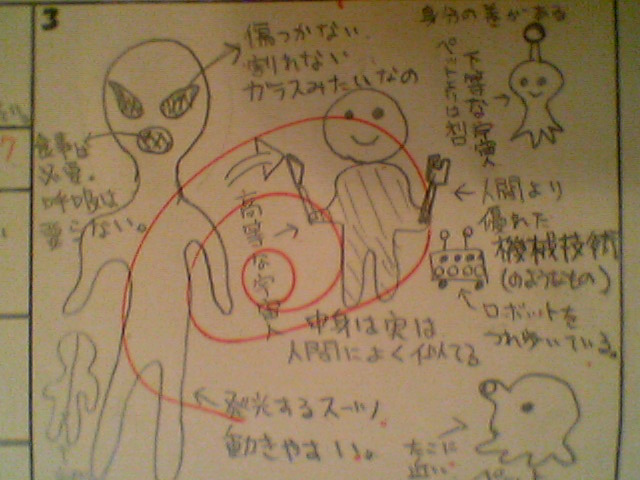 3
傷つかない
割れない
ガラスみたいなの
身分の差がある
下等な宇宙人
食事は
必要。
呼吸は
要らない。
高等な宇宙人
人間より
優れた
機械技術
(のようなもの)
ロボットを
つれ歩いている。
中身は実は
人間によく似てる
発光するスーツ
動きやすい。
たこに
近い